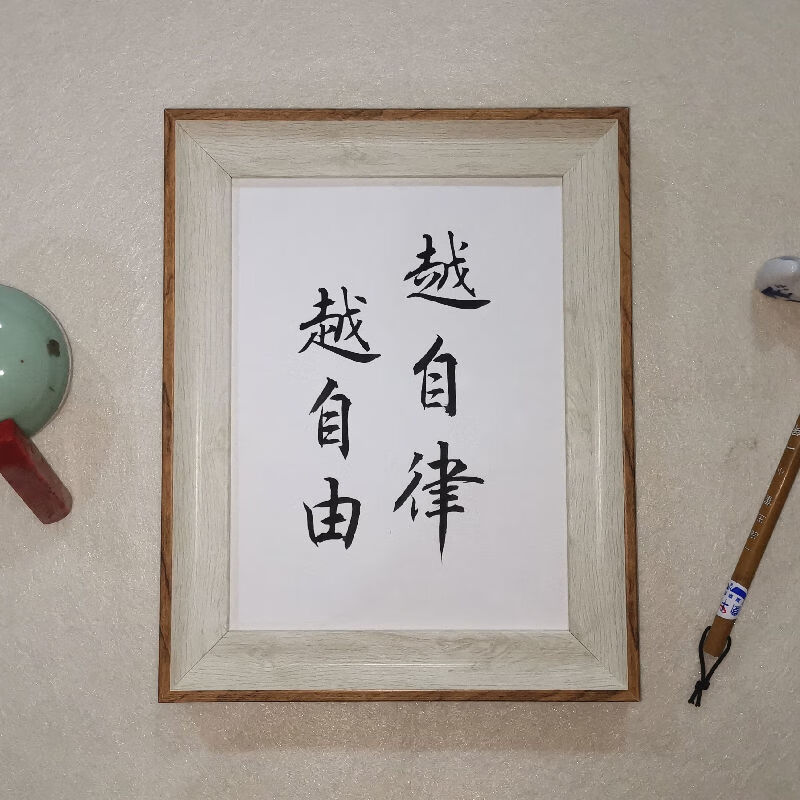 越自律
越自由